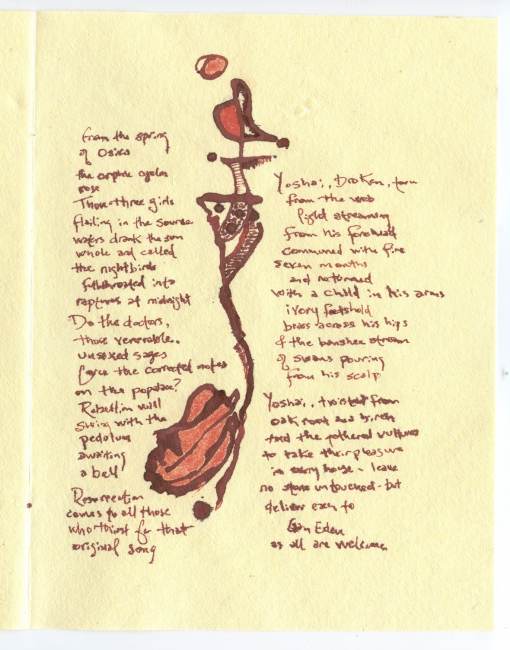 from the spring
of Osiris
the orphic cycles
rose
Those three girls
flailing in the source
waters drank the sun
whole and called
the nightbirds
into
raptures at midnight
Do the doctors,
those venerable..
unsexed sages
the corrected notes
on the populace?
Rebellion will
swing with the
pedulum
awaiting
a bell
Resurrection
comes to all those
who thirst for that
original song
Yoshai, broken, torn
from the web
light streaming
from his forehead
communed with fire
seven months
and returned
with a child in his arms
ivory foothold
brass across his hips
& the banshee stream
of swans pouring
from his scalp
Yoshai, twisted from
oak root and birch
told the gathered vultures
to take their pleasure
in every house - leave
no stone untouched - but
deliver even to
Gan Eden
as all are welcome